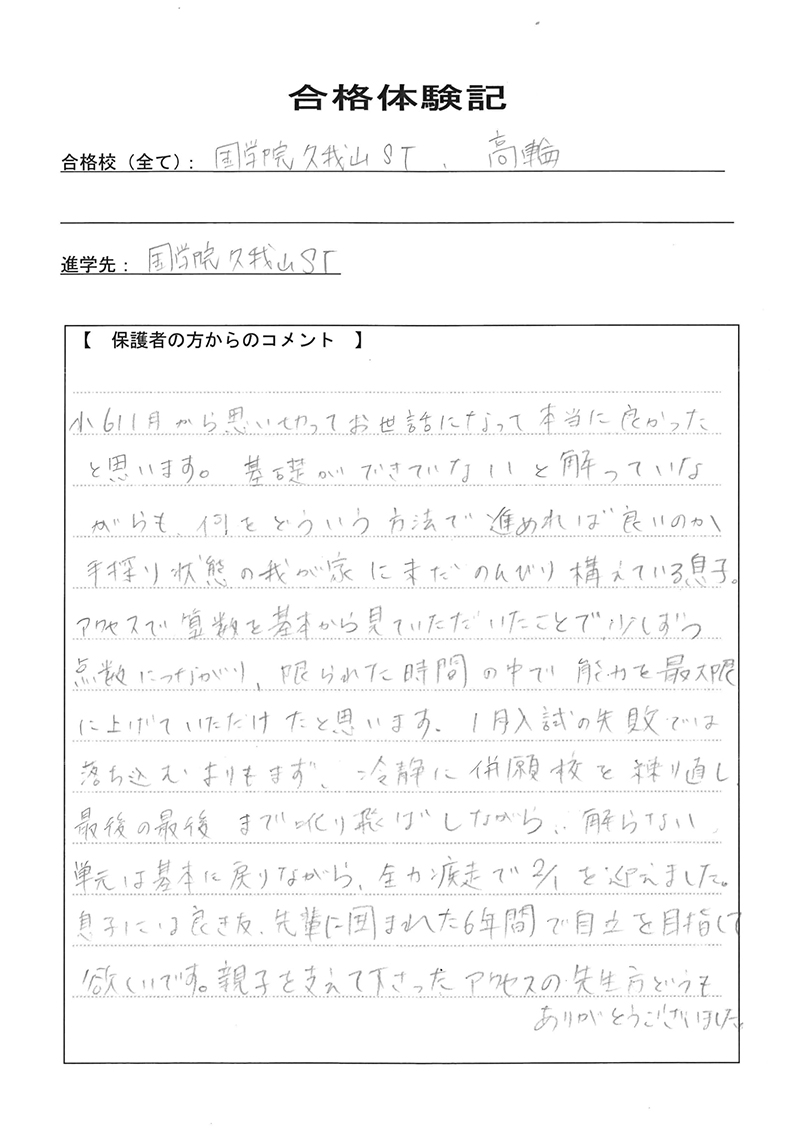 合格体験記
合格校（全て）： 国学院久我山ST 、 高輪
進学先： 国学院久我山ST
【 保護者の方からのコメント 】
小611月から思い切ってお世話になって本当に良かった
と思います。基礎ができていないと解っていな
がらも、何をどういう方法で進めれば良いのか、
手探り状態の我が家に未だのんびり構えている息子。
アクセスで算数を基本から見ていただいたことで、少しずつ
点数につながり、限られた時間の中で能力を最大限
に上げていただけたと思います。1月入試の失敗では
落ち込むよりもまず、冷静に併願校を練り直し
最後の最後まで叱り飛ばしながら、解らない
単元は基本に戻りながら、全力疾走で2/1を迎えました。
息子には良き友、先輩に囲まれた6年間で自立を目指して
欲しいです。親子を支えて下さったアクセスの先生方どうも
ありがとうございました。